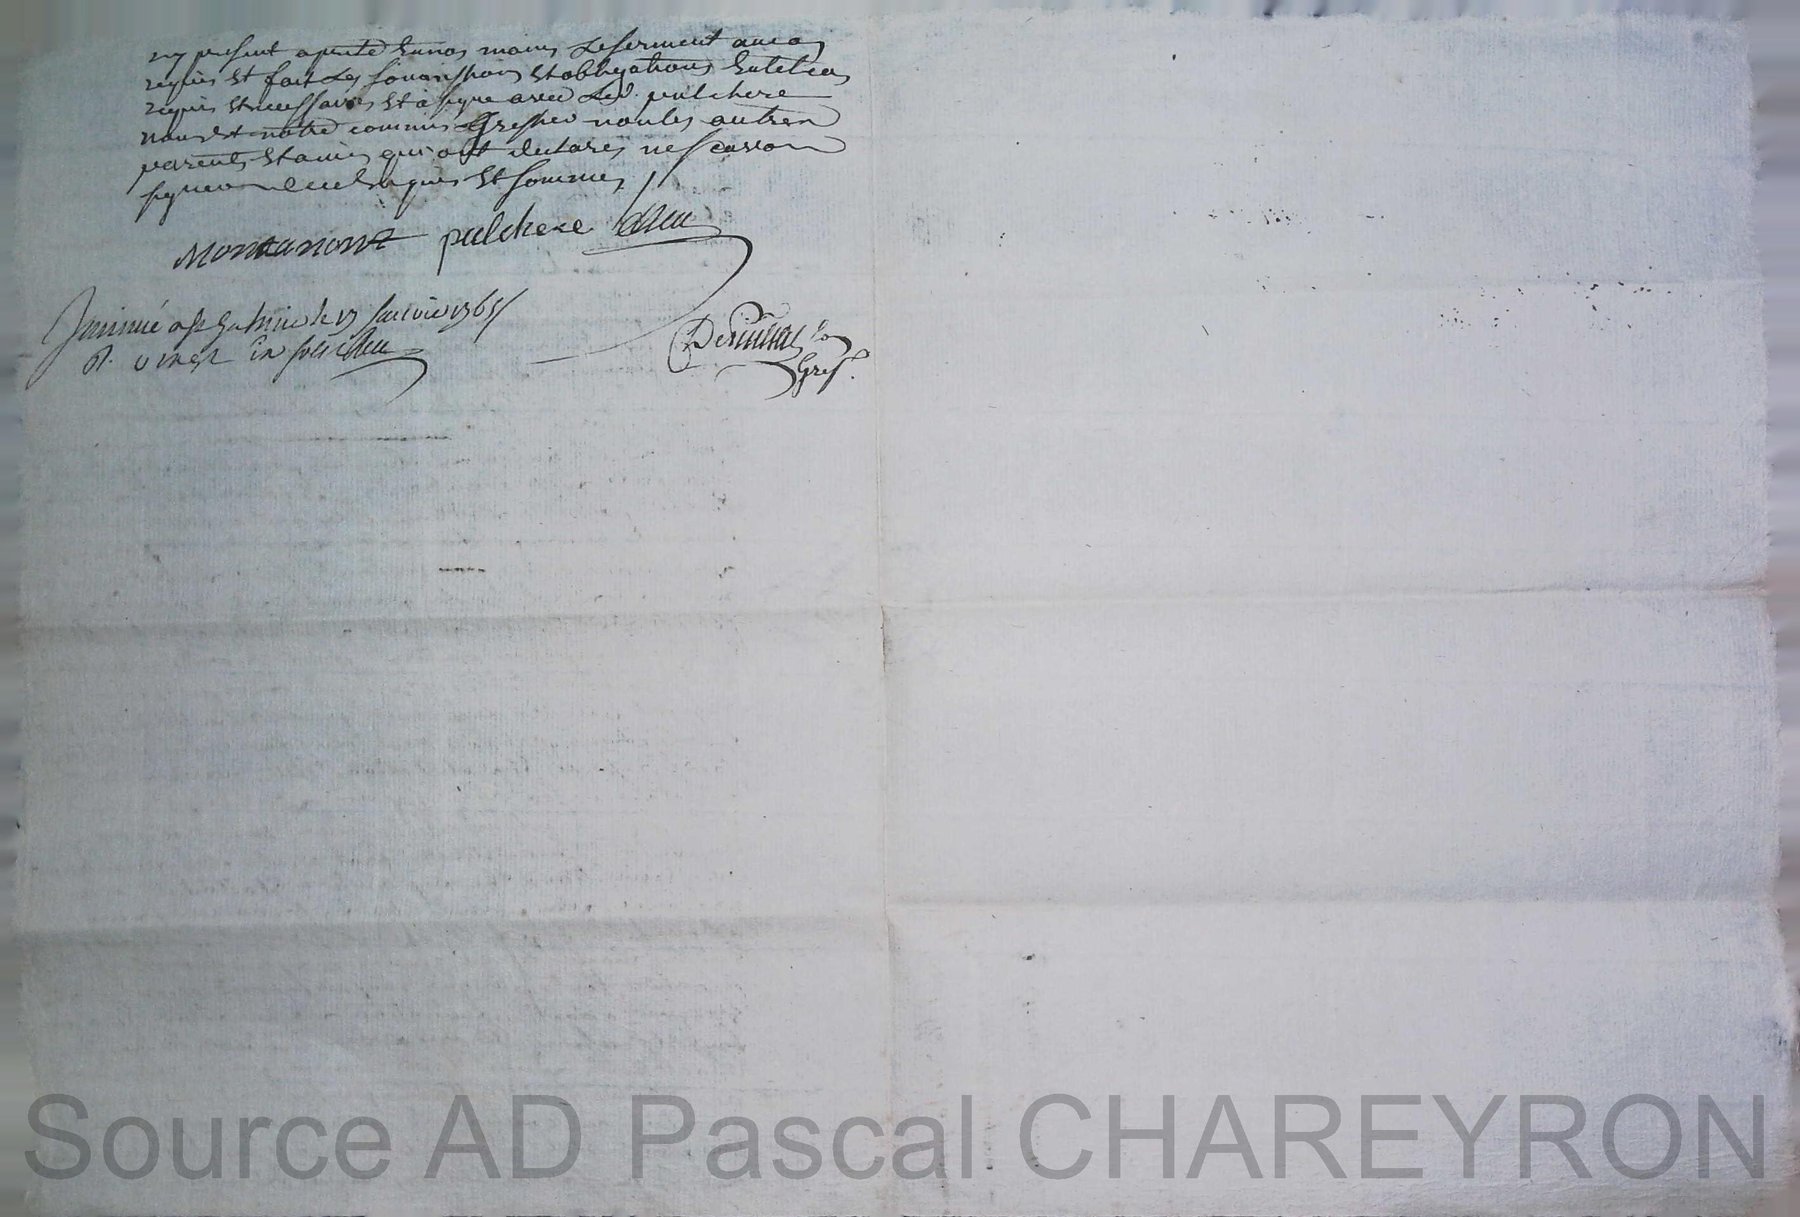 icy present a preté En nos mains Le serment au cas
requis Et fait Les soumissions Et obligations En tel cas
requis Et necessaires Et à signe avec Led. pulchere
nous Et notre commis Greffier non les autres
parents Et amis qui ont declarés ne scavoir
signer de ce Enquis Et sommés
Montanont pulchere
Insinué a Le 17 janvier 1765
R. vingt un sols
Gref.
Source AD Pascal CHAREYRON